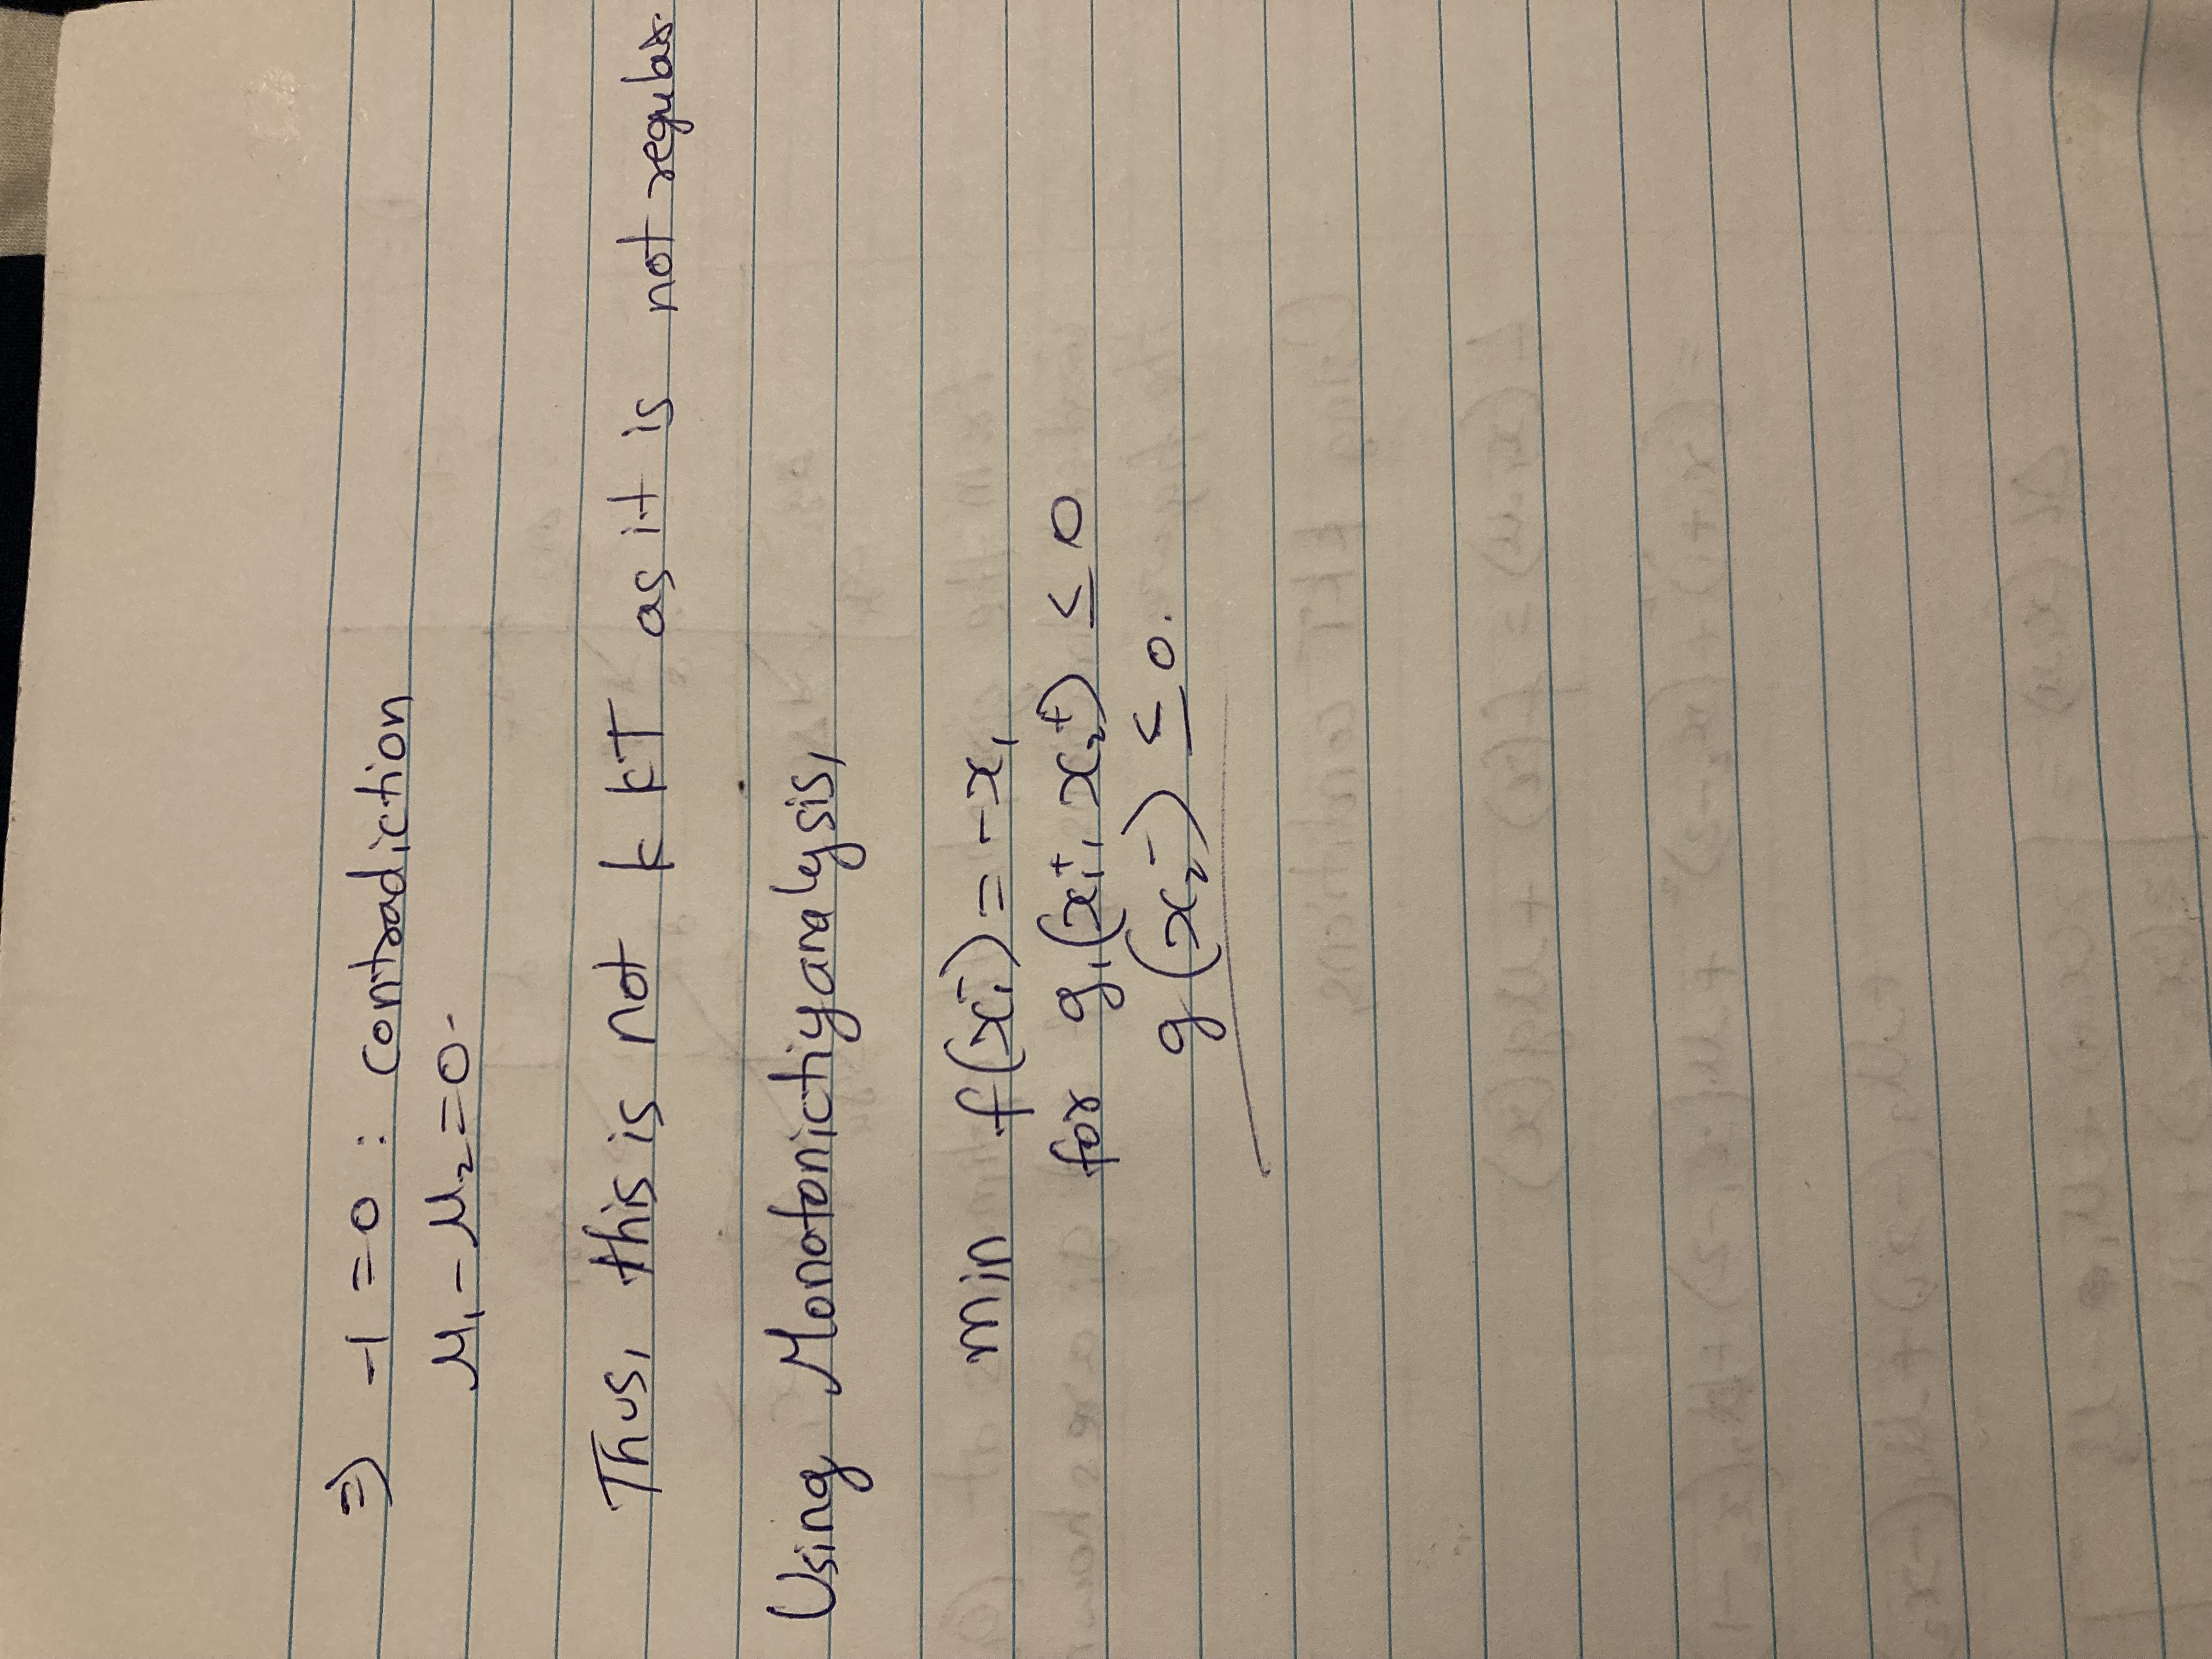 ⇒ -1 = 0 : contradiction
μ₁ - μ₂ = 0.
Thus, this is not k kT as it is not regular.
Using Monotonictiy analysis,
min f(x₁⁻) = -x₁
for g₁(x₁⁺, x₂⁺) ≤ 0
g(x₂⁻) ≤ 0.